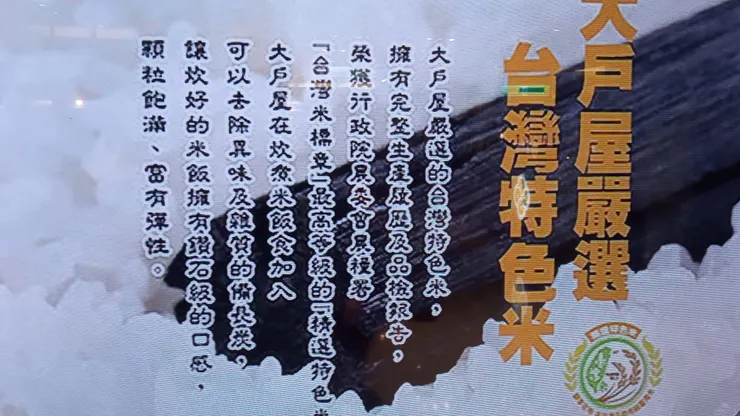 大戶屋嚴選
台灣特色米
大戶屋嚴選的台灣特色米，
擁有完整生產履歷及品檢報告，
榮獲行政院農委會農糧署
「台灣米標章」最高等級的「精選特色米
大戶屋在炊煮米飯會加入
可以去除異味及雜質的備長炭，
讓炊好的米飯擁有鑽石級的口感，
顆粒飽滿、富有彈性。